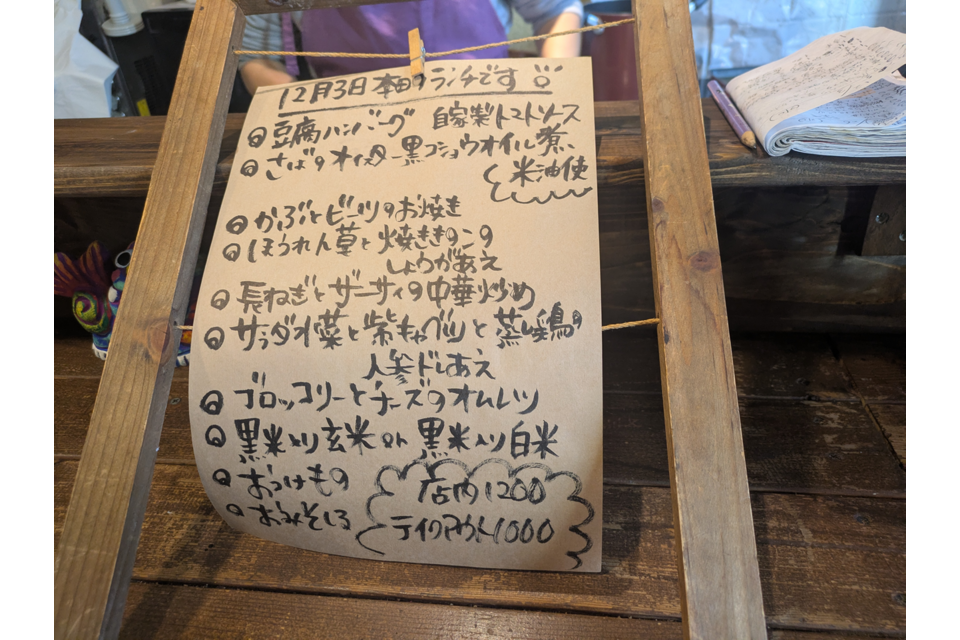 12月3日 本日のランチです
◎豆腐ハンバーグ 自家製トマトソース
◎さばの 黒コショウオイル煮
米油使
◎かぶとビーツのお焼き
◎ほうれん草と焼きキノコの
しょうがあえ
◎長ねぎとザーサイの中華炒め
◎サラダオ菜と紫キャベツと蒸し鶏の
人参ドレあえ
◎ブロッコリーとチーズのオムレツ
◎黒米入り玄米or黒米入り白米
◎おつけもの
◎おみそしる
店内1200
テイクアウト1000